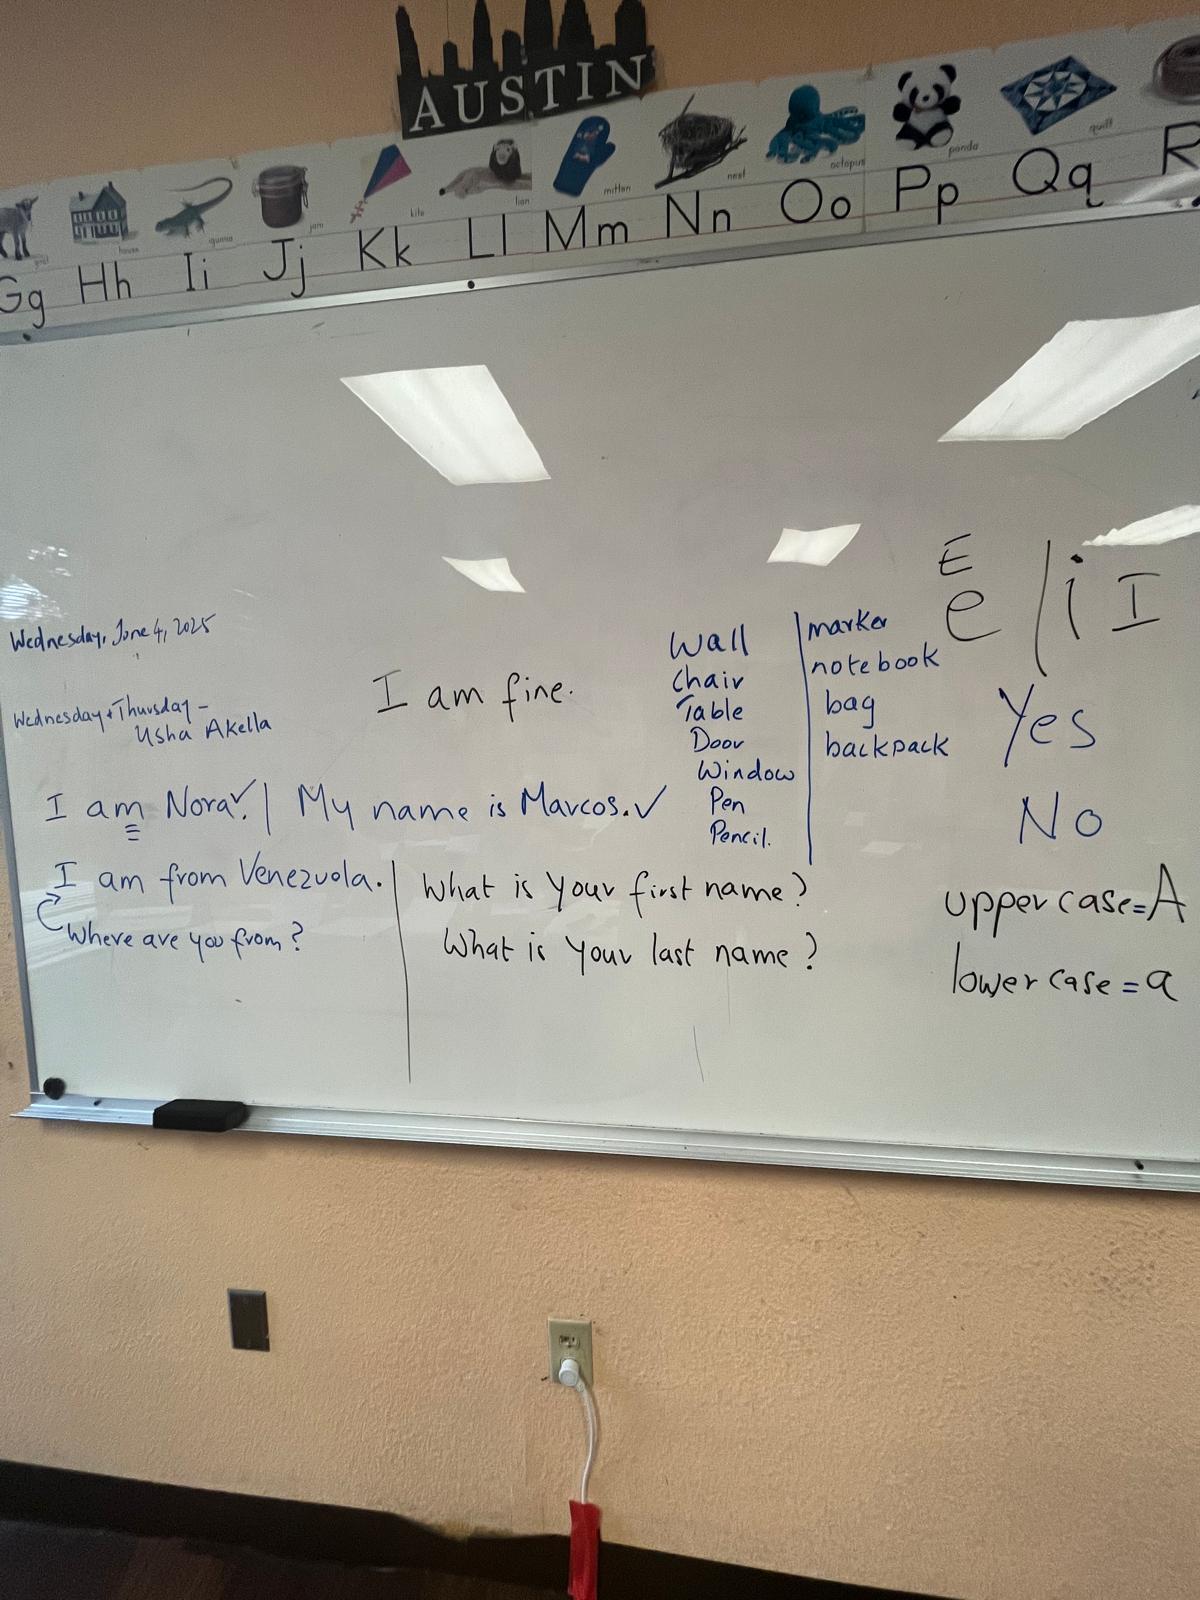 AUSTIN
goat house iguana jam kite lion mitten nest octopus panda quilt
Gg Hh Ii Jj Kk Ll Mm Nn Oo Pp Qq R
Wednesday, June 4, 2025
Wednesday + Thursday -
Usha Akella
I am fine.
I am Nora. | My name is Marcos.
I am from Venezuola.
Where are you from?
What is your first name?
What is your last name?
Wall
Chair
Table
Door
Window
Pen
Pencil.
marker
notebook
bag
backpack
E
e / i I
Yes
No
upper case = A
lower case = a